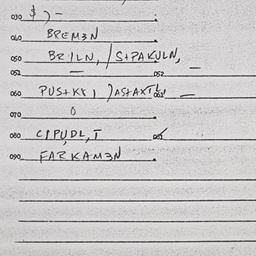 030 $ ) -
040 BREMƎN
050 BRILN, / S+PAKULN, -
052 - 052
060 PUS+KE, ) AS+AXT, -
070 0
080 CIPUDL, T
090 FARKAMƎN